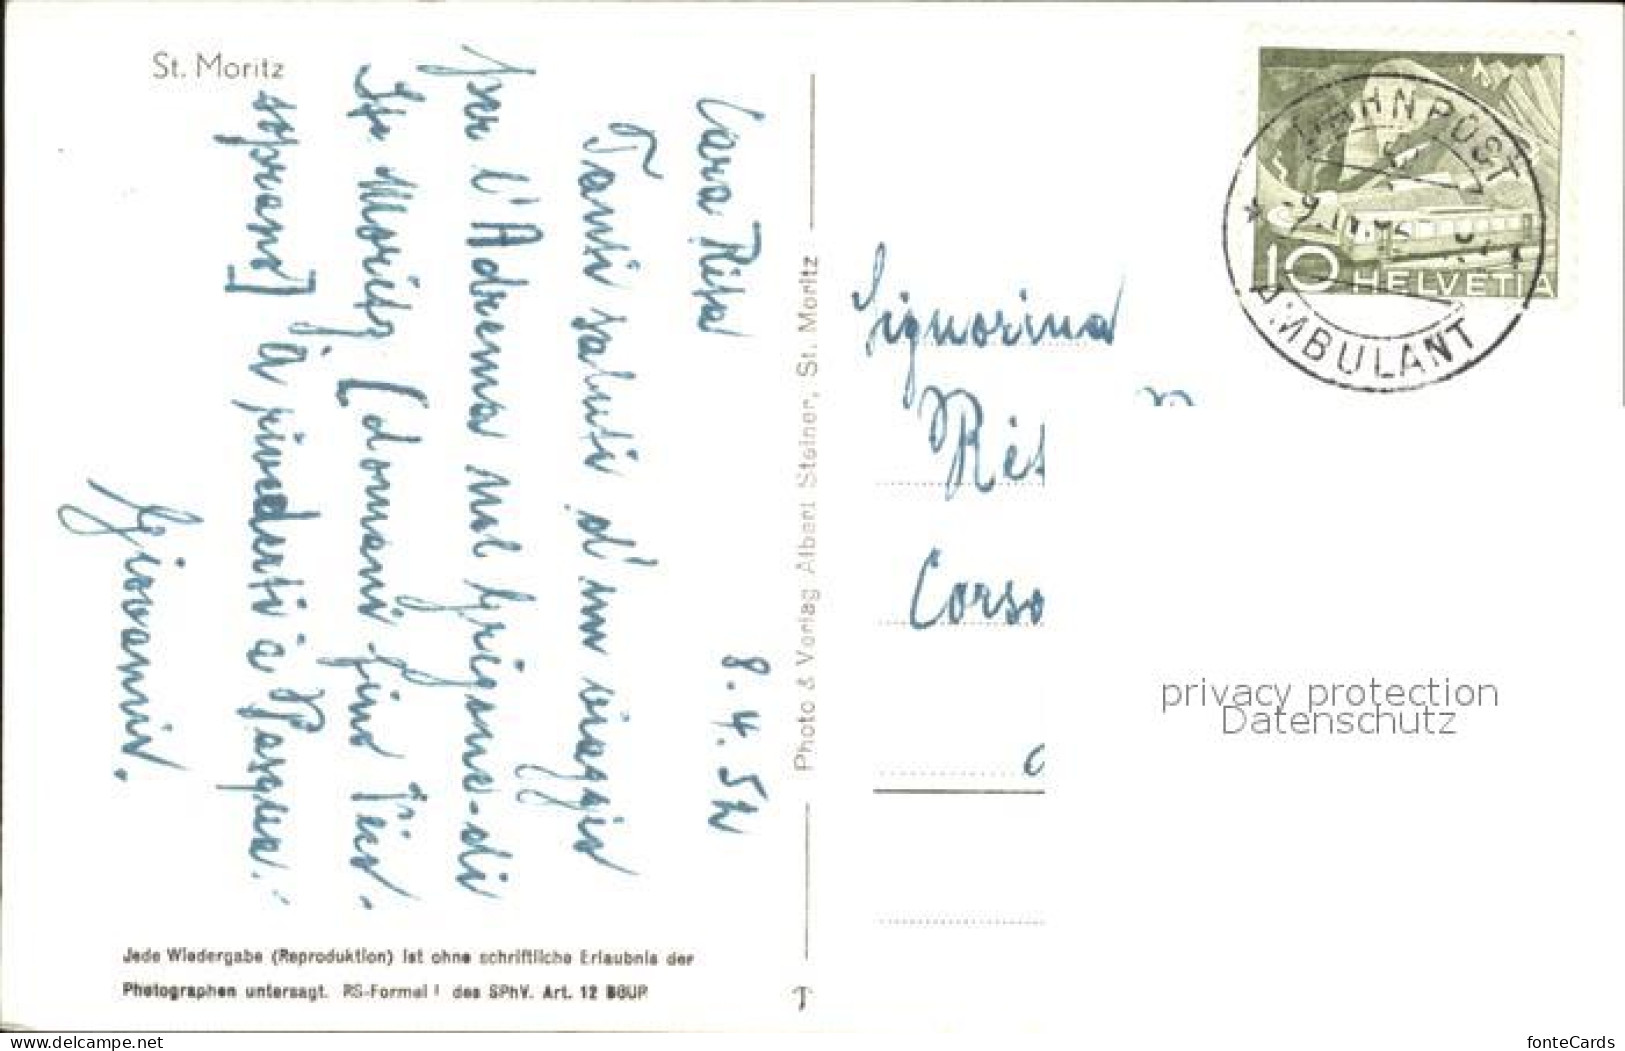 St. Moritz
Cara Rita
8.4.52
Tanti saluti d'un viaggio
per l' nel Grigione - di
St. Moritz [domani fino
soprano] A rivederti a Pasqua!
Giovanni.
Photo & Verlag Albert Steiner, St. Moritz
Jede Wiedergabe (Reproduktion) ist ohne schriftliche Erlaubnis der
Photographen untersagt. RS-Formel des SPhV. Art. 12 BGUP
BAHNPOST
AMBULANT
10 HELVETIA
Signorina
Rit
Corso
privacy protection
Datenschutz
www.delcampe.net
fonteCards